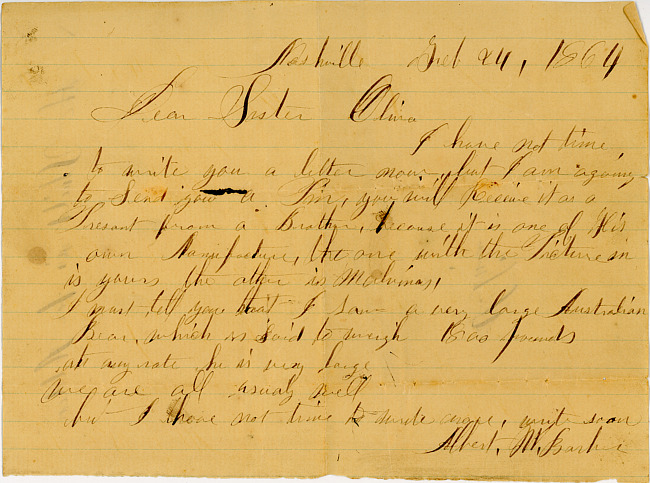 Nashville Feb 24, 1864
Dear Sister Oliva
I have not time
to write you a letter now, but I am agoing
to Send you a Pin, you will Receive it as a
Presant from a Brother, because it is one of His
own Manufacture, the one with the Picture in
is yours the other is Malvinas,
I must tell you that I saw a very large Australian
Bear, which is said to weigh pounds
at any rate he is very large
we are all usualy well
but I have not time to write more, write soon
Albert, M,